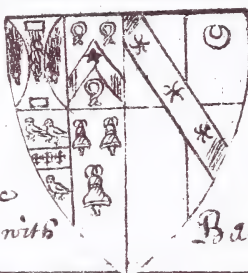 with
Ba